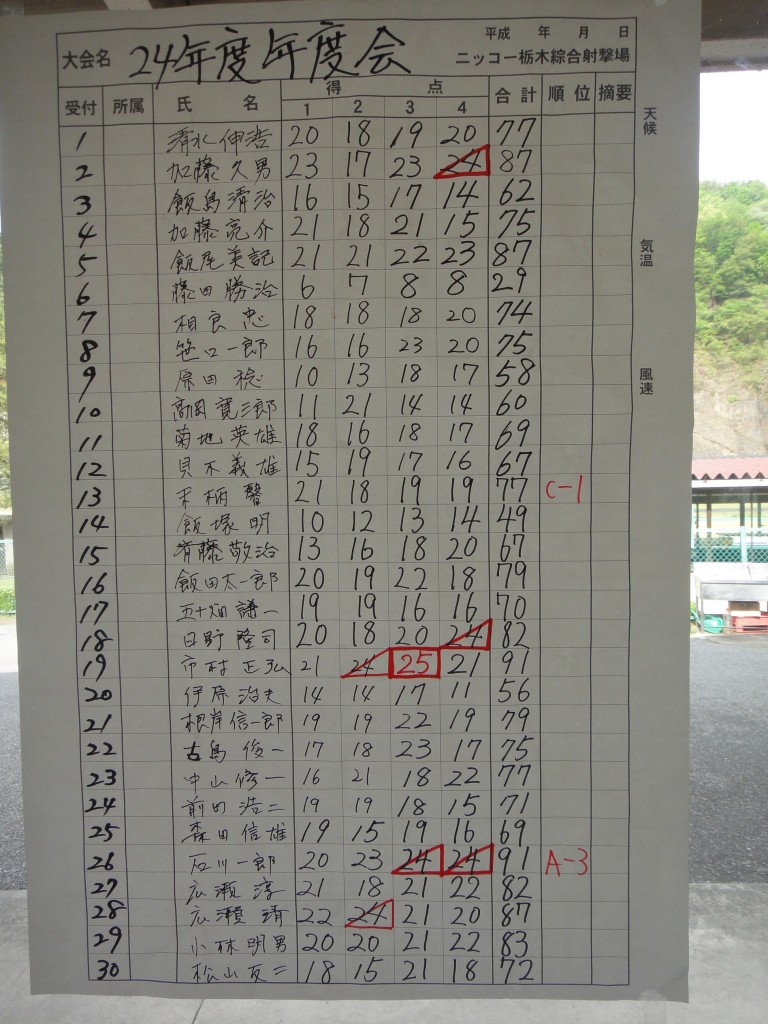 平成 年 月 日
大会名 24年度年度会 ニッコー栃木綜合射撃場
受付 所属 氏 名 得 点 合計 順位 摘要
1 2 3 4
1 清水伸浩 20 18 19 20 77
2 加藤久男 23 17 23 24 87
3 飯島清治 16 15 17 14 62
4 加藤亮介 21 18 21 15 75
5 飯尾美記 21 21 22 23 87
6 藤田勝治 6 7 8 8 29
7 相良忠 18 18 18 20 74
8 笹口一郎 16 16 23 20 75
9 原田稔 10 13 18 17 58
10 高岡寛三郎 11 21 14 14 60
11 菊地英雄 18 16 18 17 69
12 貝木義雄 15 19 17 16 67
13 末柄馨 21 18 19 19 77 C-1
14 飯塚明 10 12 13 14 49
15 斉藤敬治 13 16 18 20 67
16 飯田太一郎 20 19 22 18 79
17 五十畑謙一 19 19 16 16 70
18 日野隆司 20 18 20 24 82
19 市村正弘 21 24 25 21 91
20 伊原治夫 14 14 17 11 56
21 根岸信一郎 19 19 22 19 79
22 古島俊一 17 18 23 17 75
23 中山修一 16 21 18 22 77
24 前田浩二 19 19 18 15 71
25 森田信雄 19 15 19 16 69
26 石川一郎 20 23 24 24 91 A-3
27 広瀬淳 21 18 21 22 82
28 広瀬靖 22 24 21 20 87
29 小林明男 20 20 21 22 83
30 松山友二 18 15 21 18 72
天候
気温
風速